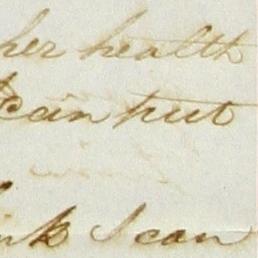 her health
I can put
ink I can